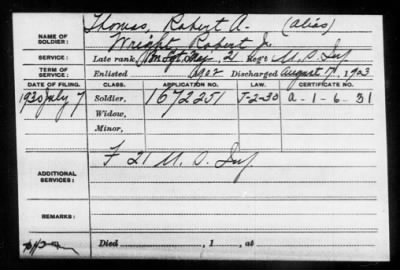 Thomas, Robert A. (alias)
NAME OF SOLDIER: Wright, Robert J.
SERVICE: Late rank, Sgt, 21 Reg't U. S. Inf
TERM OF SERVICE: Enlisted 1902 Discharged August 17, 1903
DATE OF FILING. CLASS. APPLICATION NO. LAW. CERTIFICATE NO.
1930 July 7 Soldier, 1672251 J-2-30 A-1-6-31
Widow,
Minor,
ADDITIONAL SERVICES: F 21 U. S. Inf
REMARKS:
Died , 1 , at